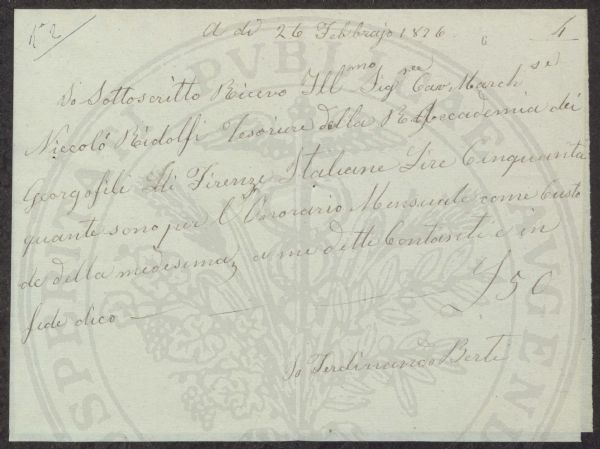 N° 2
A dì 26 Febbrajo 1826
4
Io Sottoscritto Ricevo Ill^mo Sig^re Cav. March^se
Niccolò Ridolfi Tesoriere della R. Accademia dei
Georgofili Di Firenze Italiane Lire Cinquanta
quante sono per l'Onorario Mensuale come Custo
de della medesima, a me detti Contanti e in
fede dico — £ 50
Io Ferdinando Berti
PUBLICAE
PROSPERITATI
AUGENDAE